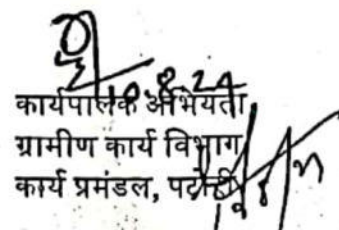 10.8.24
कार्यपालक अभियंता
ग्रामीण कार्य विभाग
कार्य प्रमंडल,